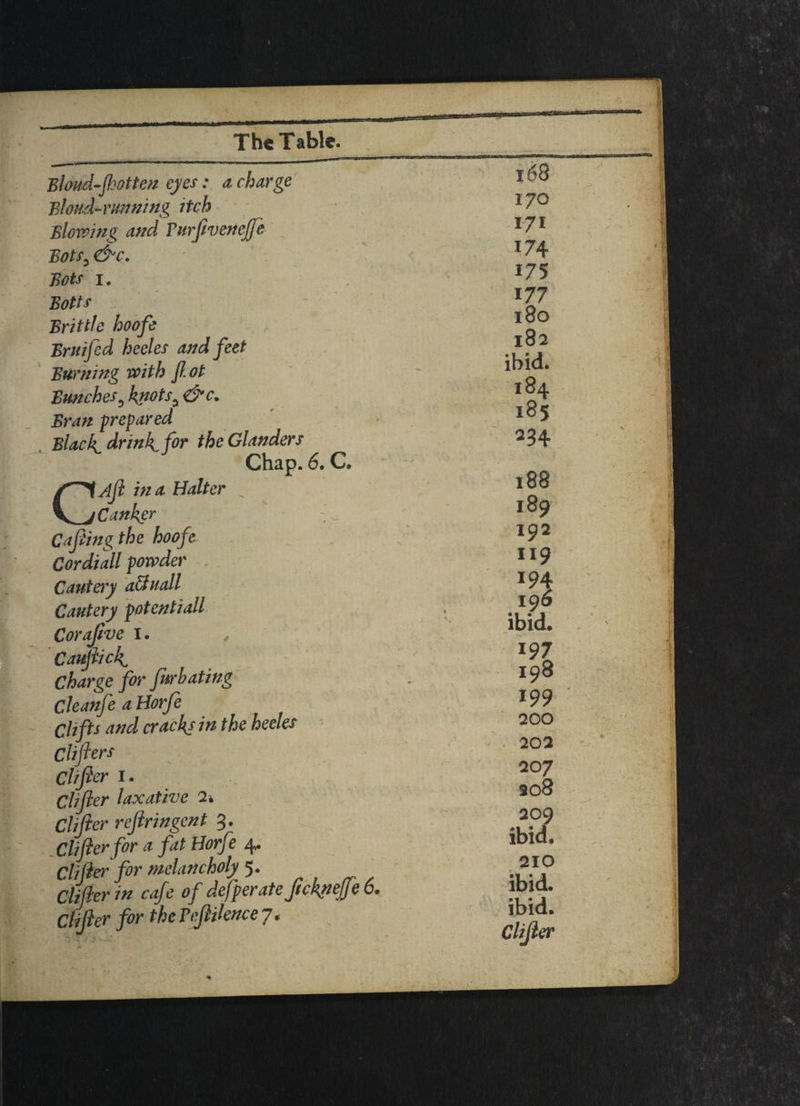 The Table.
Bloud-ſhotten eyes: a charge 168
Bloud-running itch 170
Blowing and Purſiveneſſe 171
Bots, &c. 174
Bots 1. 175
Botts 177
Brittle hoofe 180
Bruiſed heeles and feet 182
Burning with ſhot ibid.
Bunches, knots, &c. 184
Bran prepared 185
Black drink for the Glanders 234
Chap. 6. C.
CAſt in a Halter 188
Canker 189
Caſting the hoofe 192
Cordiall powder 119
Cautery actuall 194
Cautery potentiall 196
Coraſive 1. ibid.
Cauſtick 197
Charge for ſurbating 198
Cleanſe a Horſe 199
Clifts and cracks in the heeles 200
Cliſters 202
Cliſter 1. 207
Cliſter laxative 2. 208
Cliſter reſtringent 3. 209
Cliſter for a fat Horſe 4. ibid.
Cliſter for melancholy 5. 210
Cliſter in caſe of deſperate ſickneſſe 6. ibid.
Cliſter for the Peſtilence 7. ibid.
Cliſter